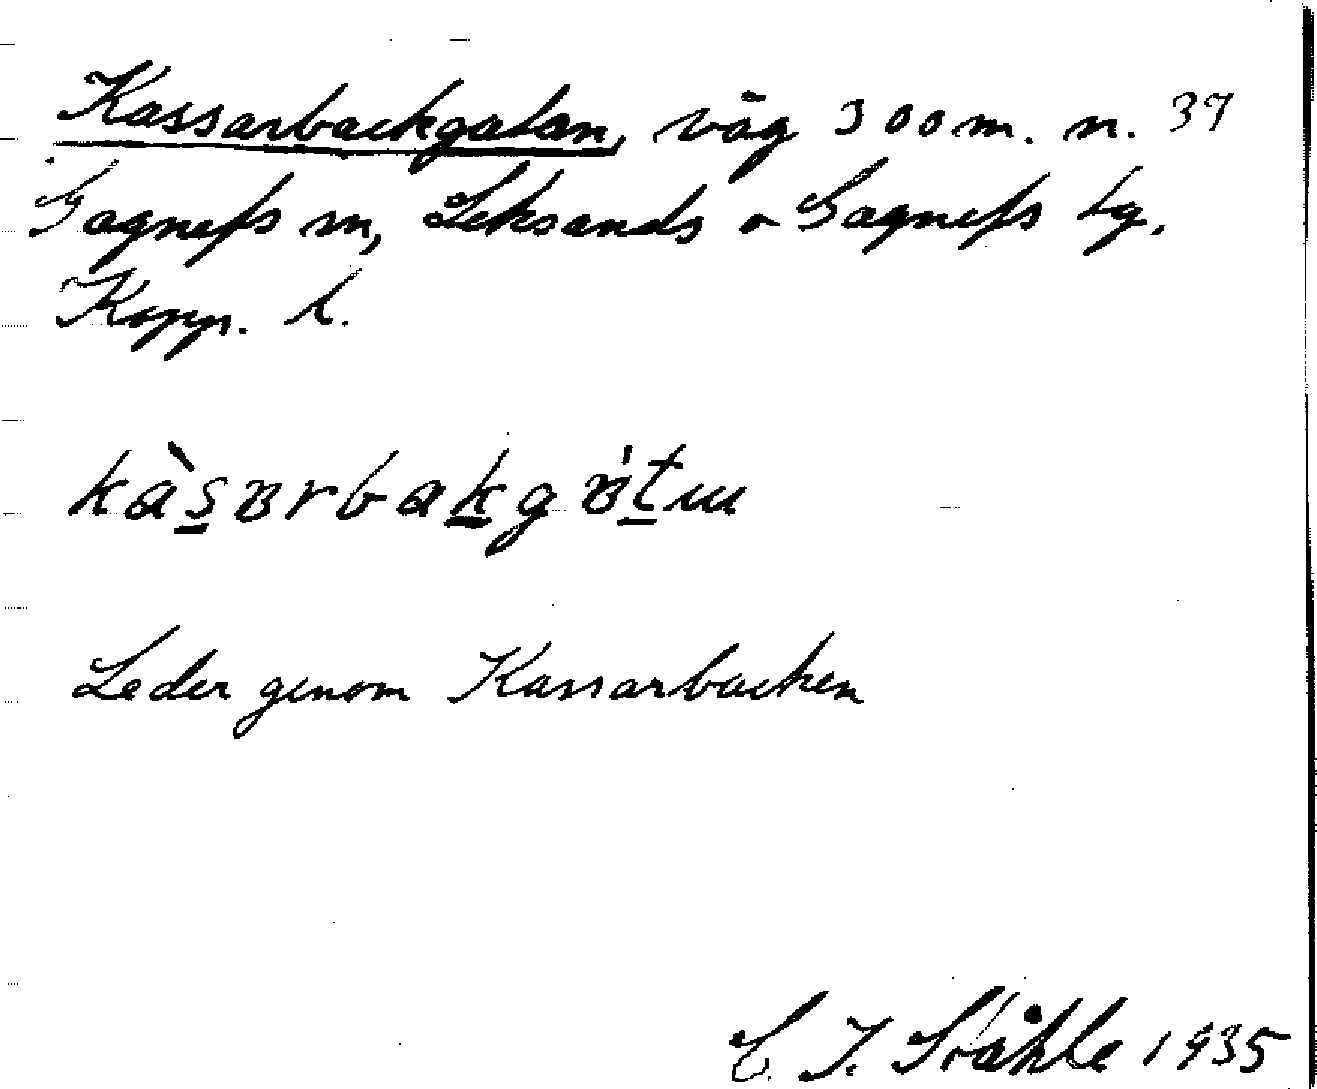 Kassarbackgatan, väg 300 m. n. 37
Gagnefs sn, Leksands o Gagnefs tg.
Kopp. l.
kàs̲ɐrbak̲gɐ̀t̲ɯ
Leder genom Kassarbacken
C. I. Ståhle 1935